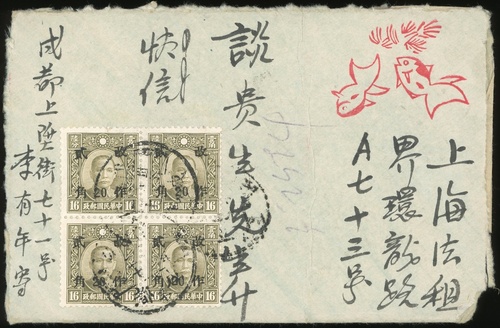 上海法租
界環龍路
A七十三号
談贵生先生升
快信
成都上陞街七十一号
李有年寄
改作
貳角
20
中華民國郵政
16 16
改作
貳角
20
中華民國郵政
16 16
改作
貳角
20
中華民國郵政
16 16
改作
貳角
20
中華民國郵政
16 16